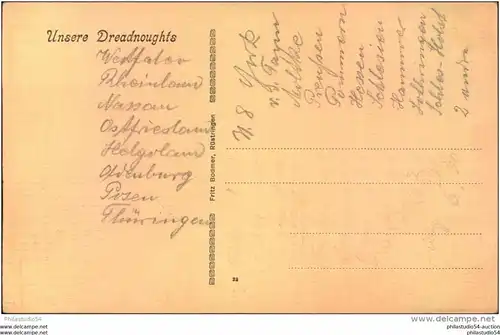 Unsere Dreadnoughts
Westfalen
Rheinland
Nassau
Ostfriesland
Helgoland
Oldenburg
Posen
Thüringen
Fritz Bodmer, Rüstringen
22
York
v. d. Tann
Moltke
Preußen
Pommern
Hessen
Schlesien
Hannover
Lothringen
Schles-Holst
philastudio54-auction
philastudio54.delcampe.net